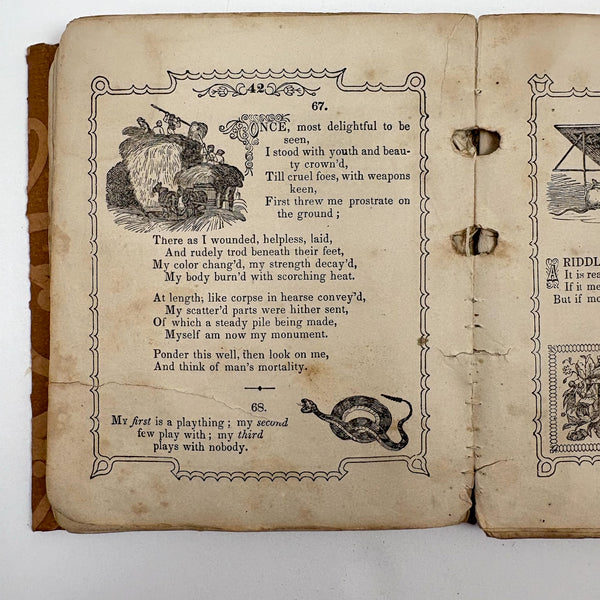 42
67.
ONCE, most delightful to be
seen,
I stood with youth and beau-
ty crown'd,
Till cruel foes, with weapons
keen,
First threw me prostrate on
the ground;
There as I wounded, helpless, laid,
And rudely trod beneath their feet,
My color chang'd, my strength decay'd,
My body burn'd with scorching heat.
At length; like corpse in hearse convey'd,
My scatter'd parts were hither sent,
Of which a steady pile being made,
Myself am now my monument.
Ponder this well, then look on me,
And think of man's mortality.
68.
MY first is a plaything; my second
few play with; my third
plays with nobody.
A RIDDL
It is rea
If it me
But if mo